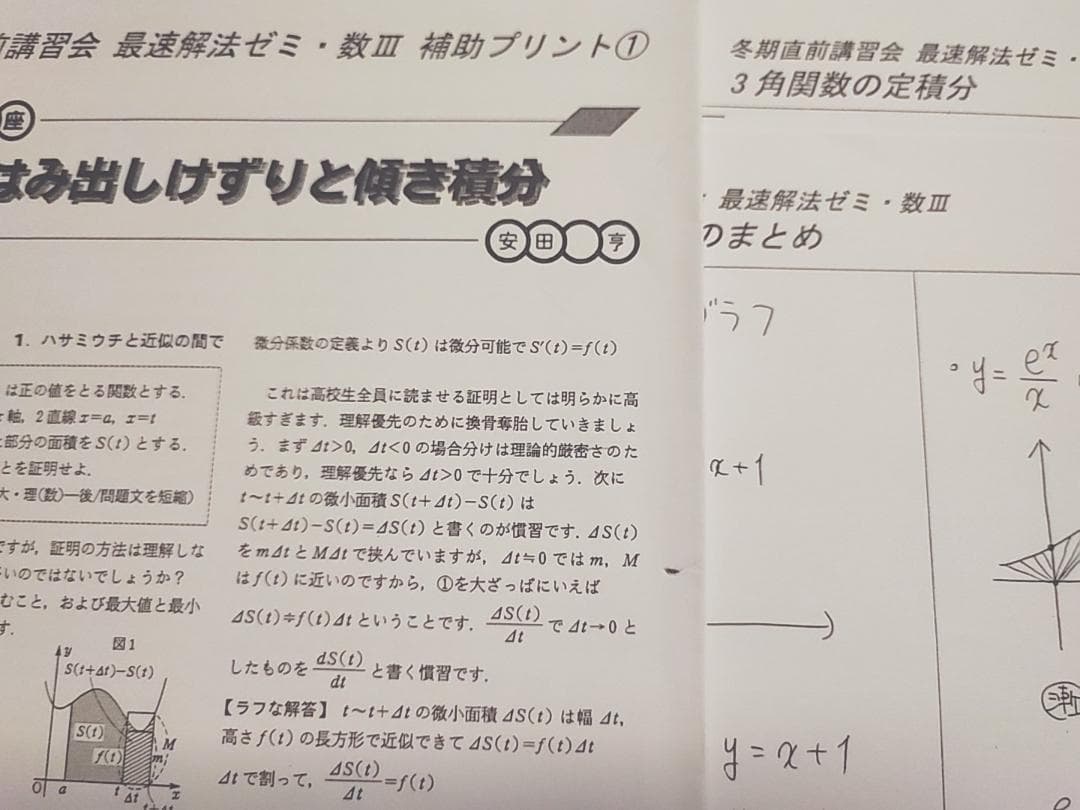 前講習会 最速解法ゼミ・数Ⅲ 補助プリント①
座
はみ出しけずりと傾き積分
安田 亨
1. ハサミウチと近似の間で
は正の値をとる関数とする.
軸, 2直線x=a, x=t
部分の面積をS(t)とする.
とを証明せよ.
大・理(数)一後/問題文を短縮)
ですが, 証明の方法は理解しな
いのではないでしょうか?
むこと, および最大値と最小
す.
図1
y
S(t+Δt)-S(t)
S(t)
f(t)
M
m
O a t Δt x
t+Δt
微分係数の定義よりS(t)は微分可能でS′(t)=f(t)
これは高校生全員に読ませる証明としては明らかに高
級すぎます. 理解優先のために換骨奪胎していきましょ
う. まずΔt>0, Δt<0の場合分けは理論的厳密さのた
めであり, 理解優先ならΔt>0で十分でしょう. 次に
t~t+Δtの微小面積S(t+Δt)-S(t)は
S(t+Δt)-S(t)=ΔS(t)と書くのが慣習です. ΔS(t)
をmΔtとMΔtで挟んでいますが, Δt≒0ではm, M
はf(t)に近いのですから, ①を大ざっぱにいえば
ΔS(t)≒f(t)Δtということです. ΔS(t)/Δt でΔt→0と
したものを dS(t)/dt と書く慣習です.
【ラフな解答】 t~t+Δtの微小面積ΔS(t)は幅Δt,
高さf(t)の長方形で近似できてΔS(t)=f(t)Δt
Δtで割って, ΔS(t)/Δt=f(t)
冬期直前講習会 最速解法ゼミ・
3角関数の定積分
最速解法ゼミ・数Ⅲ
のまとめ
グラフ
x+1
y=x+1
。y=e^x/x
漸